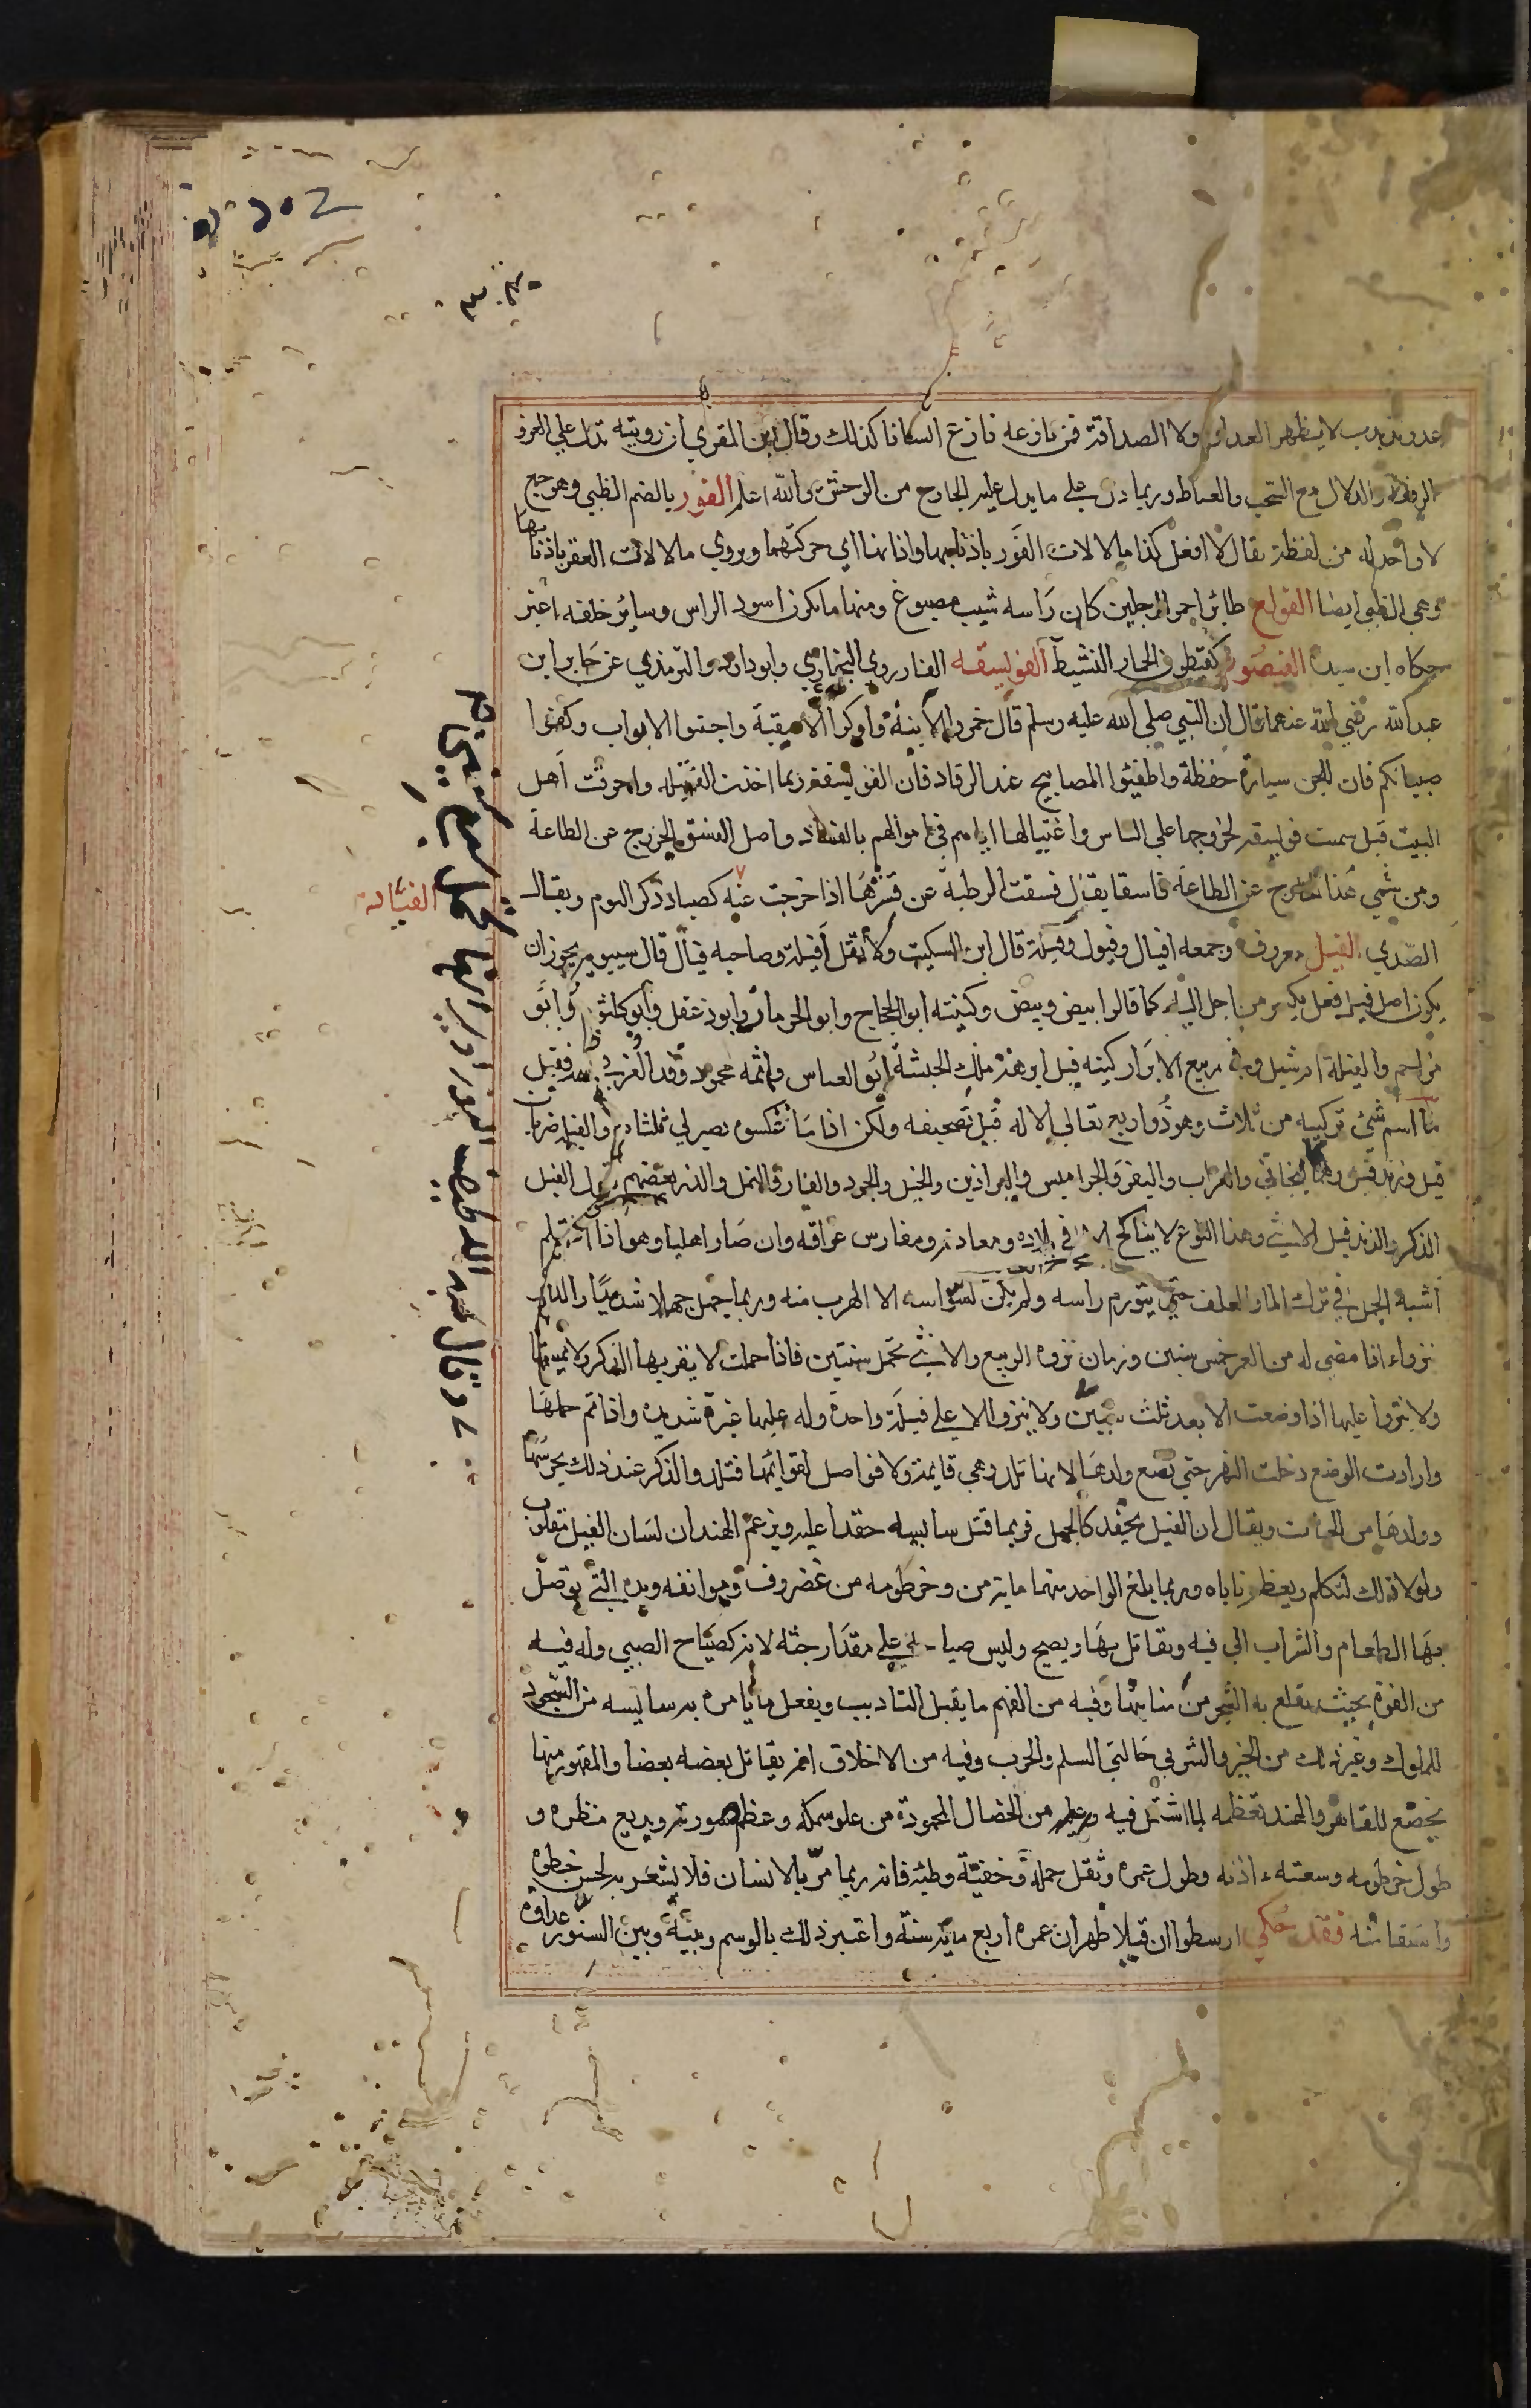 عدو مذبذب لا يظهر العداوة ولا الصداقة فمن نازعه نازع انسانا كذلك وقال ابن المقري ان رويته تدل علي العز و
والدلال مع التحبب والعياط وربما دل علي ما يدل عليه الجارح من الوحش والله اعلم الفور بالضم الظبي وهو جمع
لا واحد له من لفظه يقال لا افعل كذا ما لالات الفور باذنابها واذنابها اي حركتهما ويروي ما لالات العفر باذنابها
وهي الظبي ايضا الفولع طائر احمر الرجلين كان راسه شيب مصبوغ ومنها ما يكون اسود الراس وساير خلقه اغبر
حكاه ابن سيده الفيصور كقيطون الحمار النشيط الفويسقه الفار روي البخاري وابوداود والترمذي عن جابر ابن
عبد الله رضي الله عنهما قال ان النبي صلي الله عليه وسلم قال خمروا الانية واوكوا الاسقية واجيفوا الابواب وكفوا
صبيانكم فان للجن سيارة خطفة واطفيوا المصابيح عند الرقاد فان الفويسقة ربما اخذت الفتيلة واحرقت اهل
البيت قيل سميت فويسقة لخروجها علي الناس واغتيالها اياهم في اموالهم بالفساد واصل الفسق الخروج عن الطاعة
ومن سمي هذا الخارج عن الطاعة فاسقا يقال فسقت الرطبة عن قشرها اذا خرجت عنه كصياد ذكر البوم ويقال
الفياد
الصدي الفيل معروف وجمعه افيال وفيول وفيلة قال ابن السكيت ولا تقل افيلة وصاحبه فيال قال سيبويه يجوز ان
يكون اصل فيل فعل يكسر من اجل الياء كما قالوا ابيض وبيض وكنيته ابو الحجاج وابو الحرمان وابو دغفل وابو كلثوم وابو
مزاحم والفيلة ام شبل وفي ربيع الابرار كنيته فيل ابرهة ملك الحبشة ابو العباس واسمه محمود وقد الغز فيه بعضهم فقيل
ما اسم شيء تركيبه من ثلاث وهو ذو اربع تعالي الاله قيل تصحيفه ولكن اذا ما عكسوه يصير لي ثلثاه والفيلة ضربان
فيل وزندفيل وهما كالبخاتي والعراب والبقر والجواميس والبراذين والخيل والجرد والفار والنمل والذر وبعضهم يقول الفيل
الذكر والزندفيل الانثي وهذا النوع لا يناكح الا في بلاده ومعادنه ومغارس عراقه وان صار اهليا وهو اذا اغتلم
اشبه الجمل في ترك الماء والعلف حتي يتورم راسه ولم يكن لسواسه الا الهرب منه وربما جهل جهلا شديدا والذكر
ينزو اذا مضي له من العمر خمس سنين وزمان نزوه الربيع والانثي تحمل سنتين فاذا حملت لا يقربها الذكر ولا يمسها
ولا ينزو عليها اذا وضعت الا بعد ثلث سنين ولا ينزو الا علي فيلة واحدة وله عليها غيرة شديدة واذا تم حملها
وارادت الوضع دخلت النهر حتي تضع ولدها لانها تلد وهي قايمة ولا فواصل لقوائمها فتلد والذكر عند ذلك يحرسها
وولدها من الحيات ويقال ان الفيل يحقد كالجمل فربما قتل سايسه حقدا عليه ويزعم الهند ان لسان الفيل مقلوب
ولولا ذلك لتكلم ويعظم ناباه وربما بلغ الواحد منهما ماية من وخرطومه من غضروف وهو انفه ويده التي يوصل
بها الطعام والشراب الي فيه ويقاتل بها ويصيح وليس صياحه علي مقدار جثته لانه كصياح الصبي وله فيه
من القوة بحيث يقلع به الشجر من منابتها وفيه من الفهم ما يقبل التاديب ويفعل ما يامره به سايسه من السجود
للملوك وغير ذلك من الخير والشر في حالتي السلم والحرب وفيه من الاخلاق انه يقاتل بعضه بعضا والمقهور منها
يخضع للقاهر والهند تعظمه لما اشتمل فيه من الخصال المحمودة من علو سمكه وعظم صورته وبديع منظره و
طول خرطومه وسعة اذنه وطول عمره وثقل حمله وخفة وطيه فانه ربما مر بالانسان فلا يشعر به لحسن خطوه
واستقامته فقد حكي ارسطوا ان فيلا ظهر ان عمره اربع ماية سنة واعتبر ذلك بالوسم وبينه وبين السنور عداوة